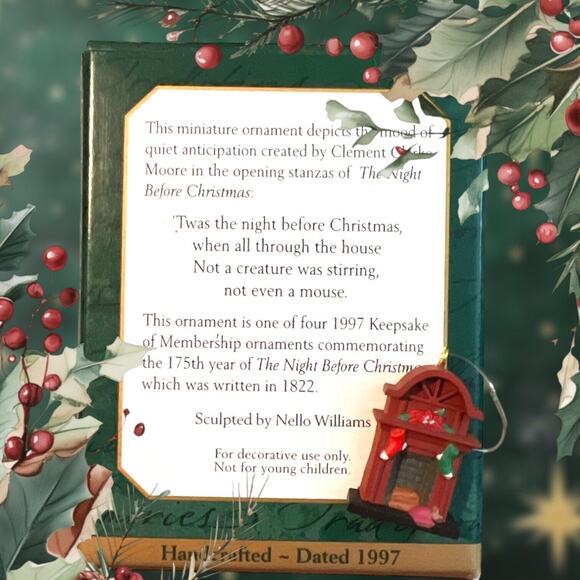 This miniature ornament depicts the mood of
quiet anticipation created by Clement Clarke
Moore in the opening stanzas of The Night
Before Christmas:
'Twas the night before Christmas,
when all through the house
Not a creature was stirring,
not even a mouse.
This ornament is one of four 1997 Keepsake
of Membership ornaments commemorating
the 175th year of The Night Before Christmas
which was written in 1822.
Sculpted by Nello Williams
For decorative use only.
Not for young children.
Handcrafted ~ Dated 1997